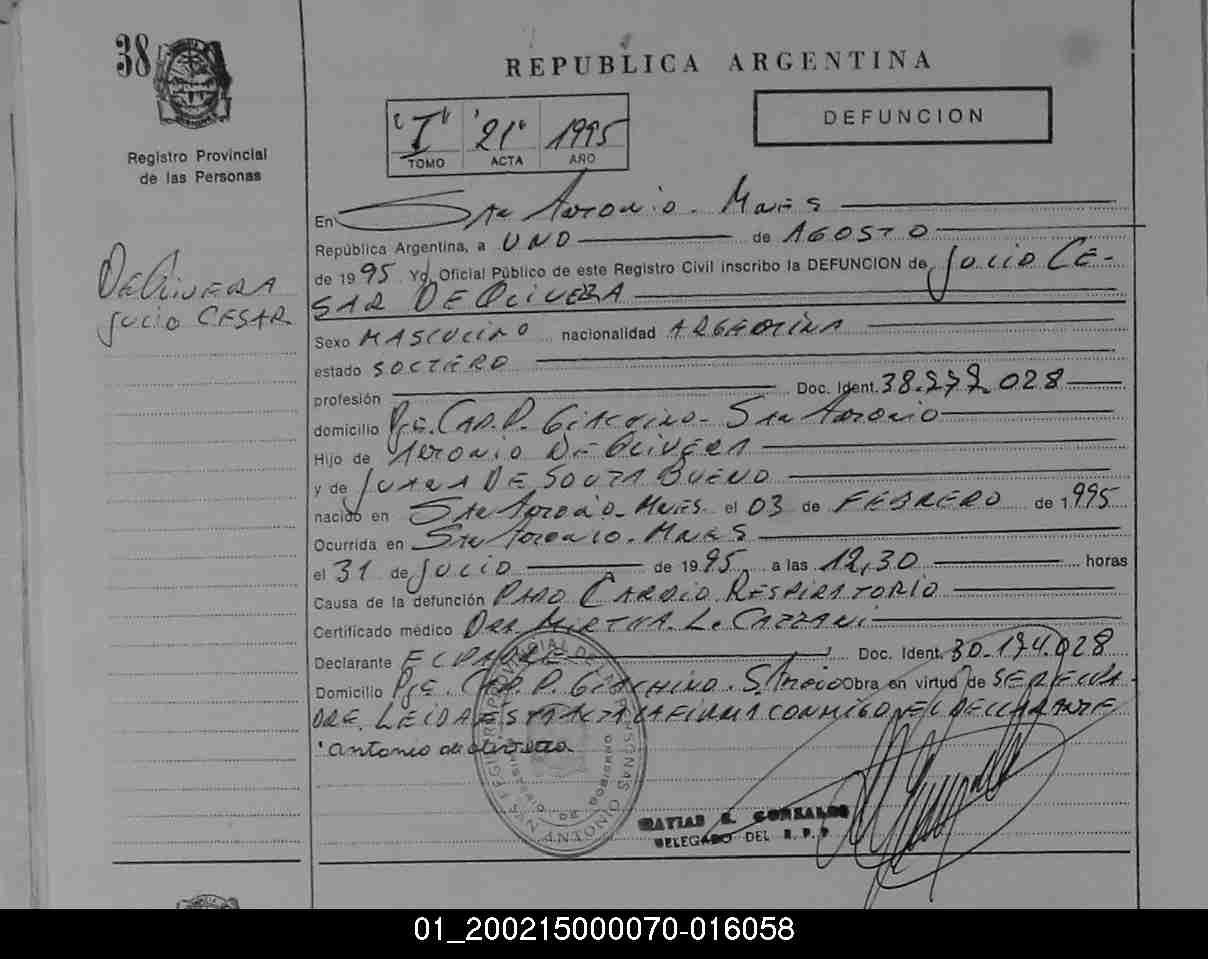 38
REPUBLICA ARGENTINA
DEFUNCION
"I" "21" 1995
TOMO ACTA AÑO
Registro Provincial
de las Personas
DE OLIVERA
JULIO CESAR
En San Antonio. Mnes
República Argentina, a UNO de AGOSTO
de 1995 Yo, Oficial Público de este Registro Civil inscribo la DEFUNCION de JULIO CE-
SAR DE OLIVERA
Sexo MASCULINO nacionalidad ARGENTINA
estado SOLTERO
profesión Doc. Ident. 38.272.028
domicilio Pje. CAP. P. GIACHINO - San Antonio
Hijo de ANTONIO DE OLIVERA
y de JUANA DE SOUZA BUENO
nacido en San Antonio - Mnes. el 03 de FEBRERO de 1995
Ocurrida en San Antonio. Mnes
el 31 de JULIO de 1995 a las 12,30 horas
Causa de la defunción PARO CARDIO RESPIRATORIO
Certificado médico DRA. MIRTHA. L. CAZZANI
Declarante EL PADRE Doc. Ident. 30.174.028
Domicilio Pje. CAP. P. GIACHINO. S. Antonio Obra en virtud de SER EL PA-
DRE. LEIDA ESTA ACTA LA FIRMA CONMIGO EL DECLARANTE
Antonio de olivera
MATIAS E. GONZALEZ
DELEGADO DEL R. P. P.
01_200215000070-016058